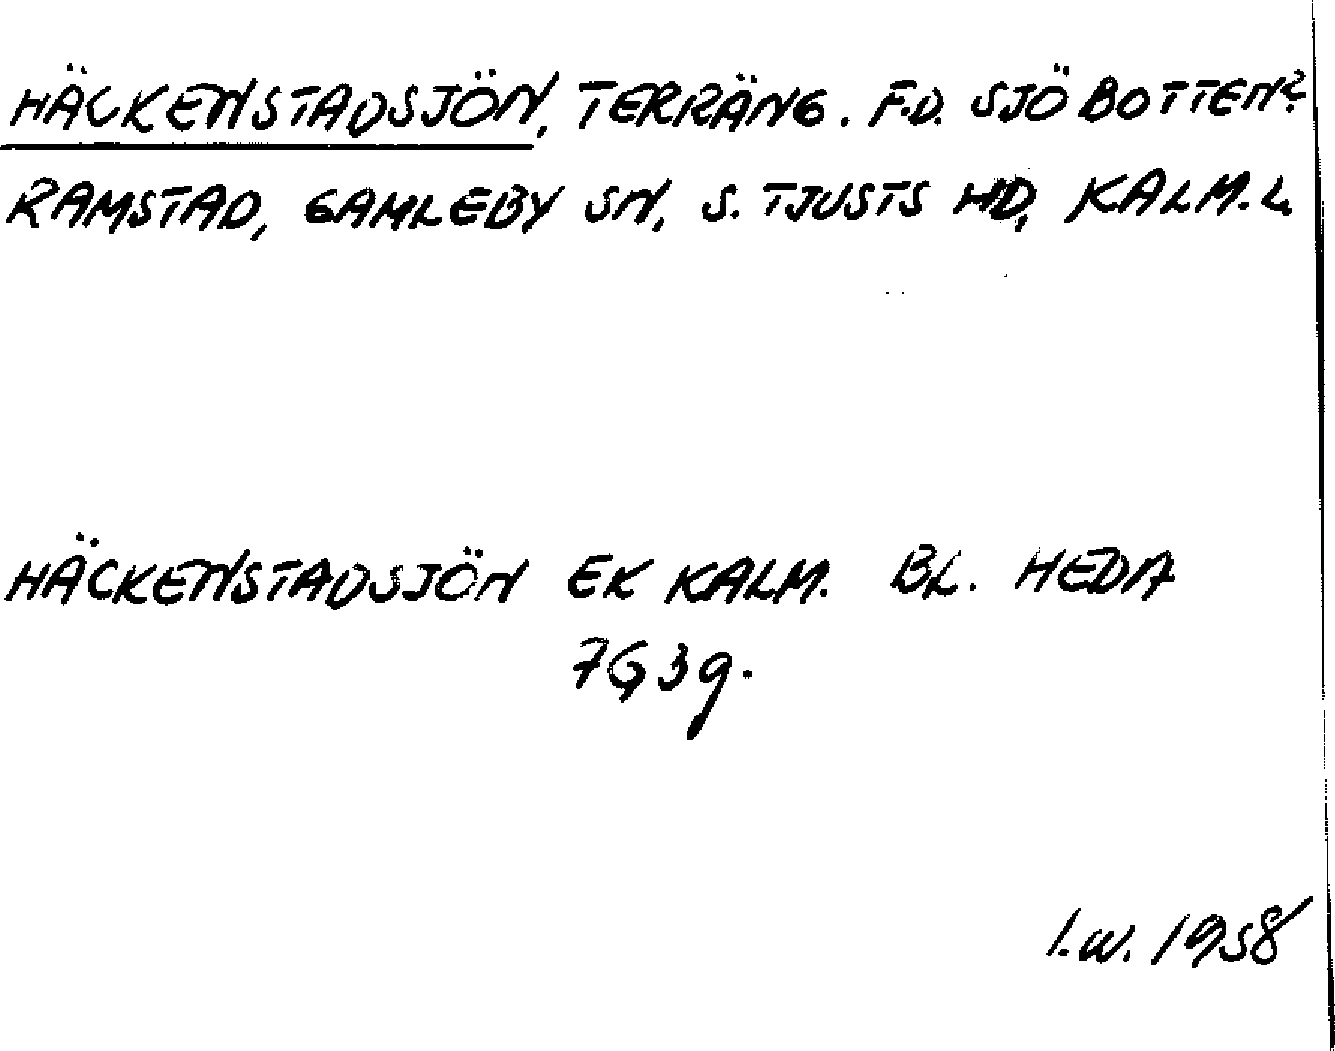 HÄCKENSTADSJÖN, TERRÄNG. F.D. SJÖBOTTEN?
RAMSTAD, GAMLEBY SN, S. TJUSTS HD, KALM. L.
HÄCKENSTADSJÖN EK KALM. BL. HEDA
7G3g.
I.W. 1958